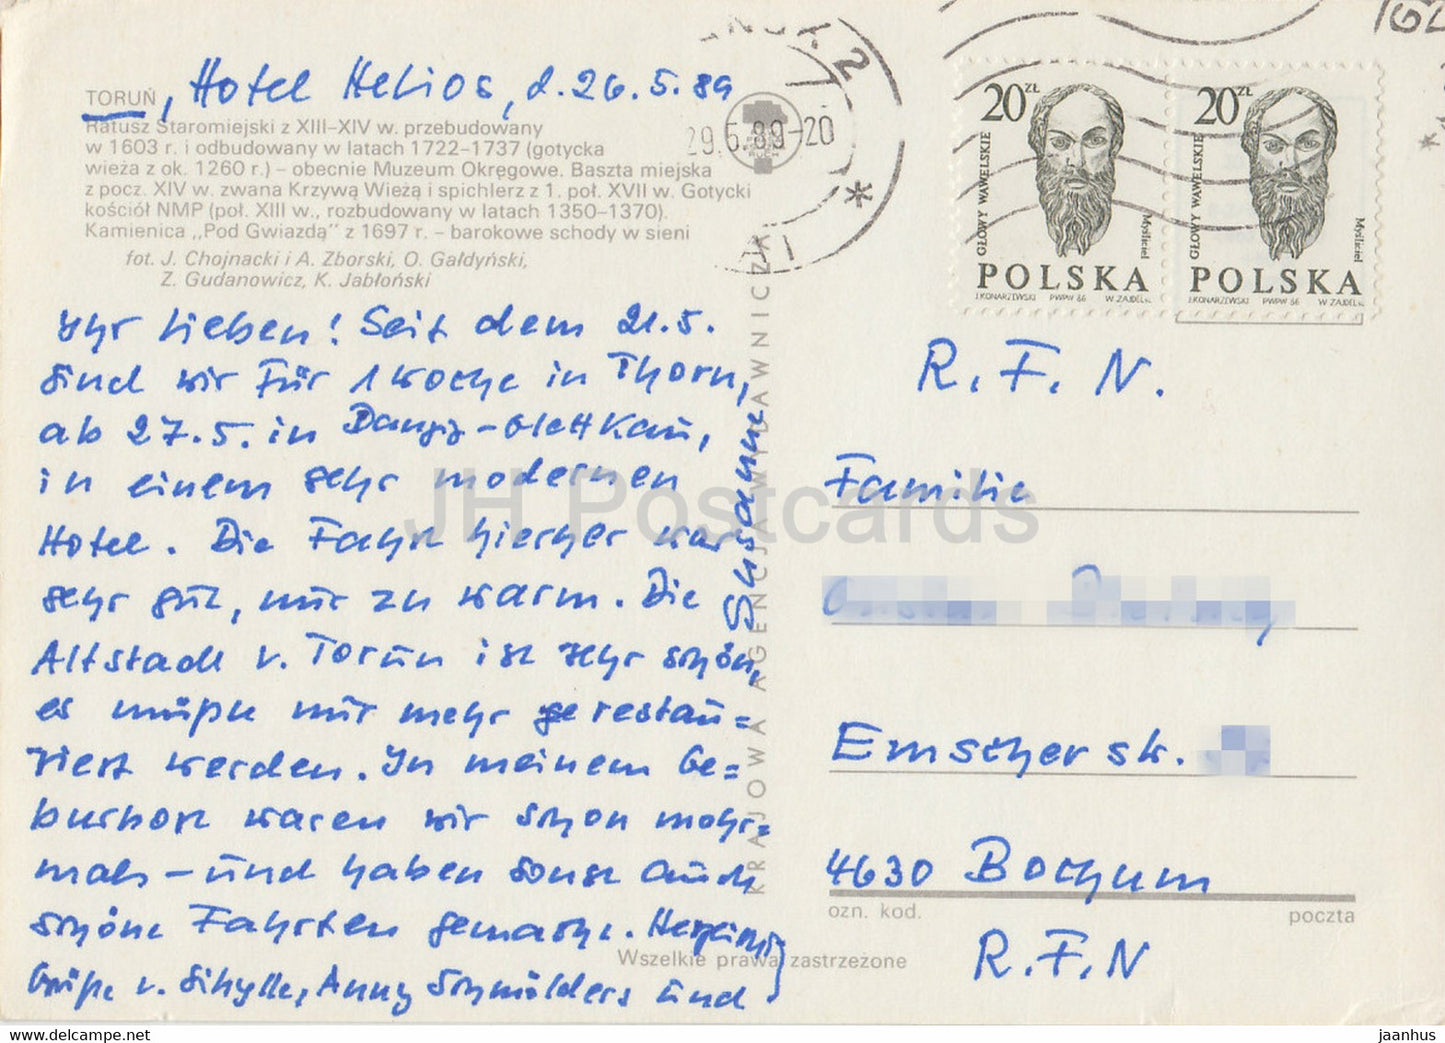 TORUŃ, Hotel Helios, d. 26.5.89
Ratusz Staromiejski z XIII–XIV w. przebudowany
w 1603 r. i odbudowany w latach 1722–1737 (gotycka
wieża z ok. 1260 r.) – obecnie Muzeum Okręgowe. Baszta miejska
z pocz. XIV w. zwana Krzywą Wieżą i spichlerz z 1. poł. XVII w. Gotycki
kościół NMP (poł. XIII w., rozbudowany w latach 1350–1370).
Kamienica „Pod Gwiazdą” z 1697 r. – barokowe schody w sieni
fot. J. Chojnacki i A. Zborski, O. Gałdyński,
Z. Gudanowicz, K. Jabłoński
Ihr Lieben! Seit dem 21.5.
sind wir für 1 Woche in Thorn,
ab 27.5. in Danzig-Glettkau,
in einem sehr modernen
Hotel. Die Fahrt hierher war
sehr gut, nur zu warm. Die
Altstadt v. Torun ist sehr schön,
es müßte nur mehr restau=
riert werden. In meinem Ge=
burtsort waren wir schon mehr=
mals – und haben sonst auch
schöne Fahrten gemacht. Herzlich
Grüße v. Sibylle, Anny Schmölders und
Susanne
KRAJOWA AGENCJA WYDAWNICZA
RUCH
Wszelkie prawa zastrzeżone
2
29.5.89-20
20 ZŁ
GŁOWY WAWELSKIE
Myśliciel
POLSKA
J.KONARZEWSKI PWPW 86 W. ZAJDEL sc.
20 ZŁ
GŁOWY WAWELSKIE
Myśliciel
POLSKA
J.KONARZEWSKI PWPW 86 W. ZAJDEL sc.
R. F. N.
Familie
Emscherstr.
4630 Bochum
ozn. kod. poczta
R.F.N
JH Postcards
www.delcampe.net
jaanhus